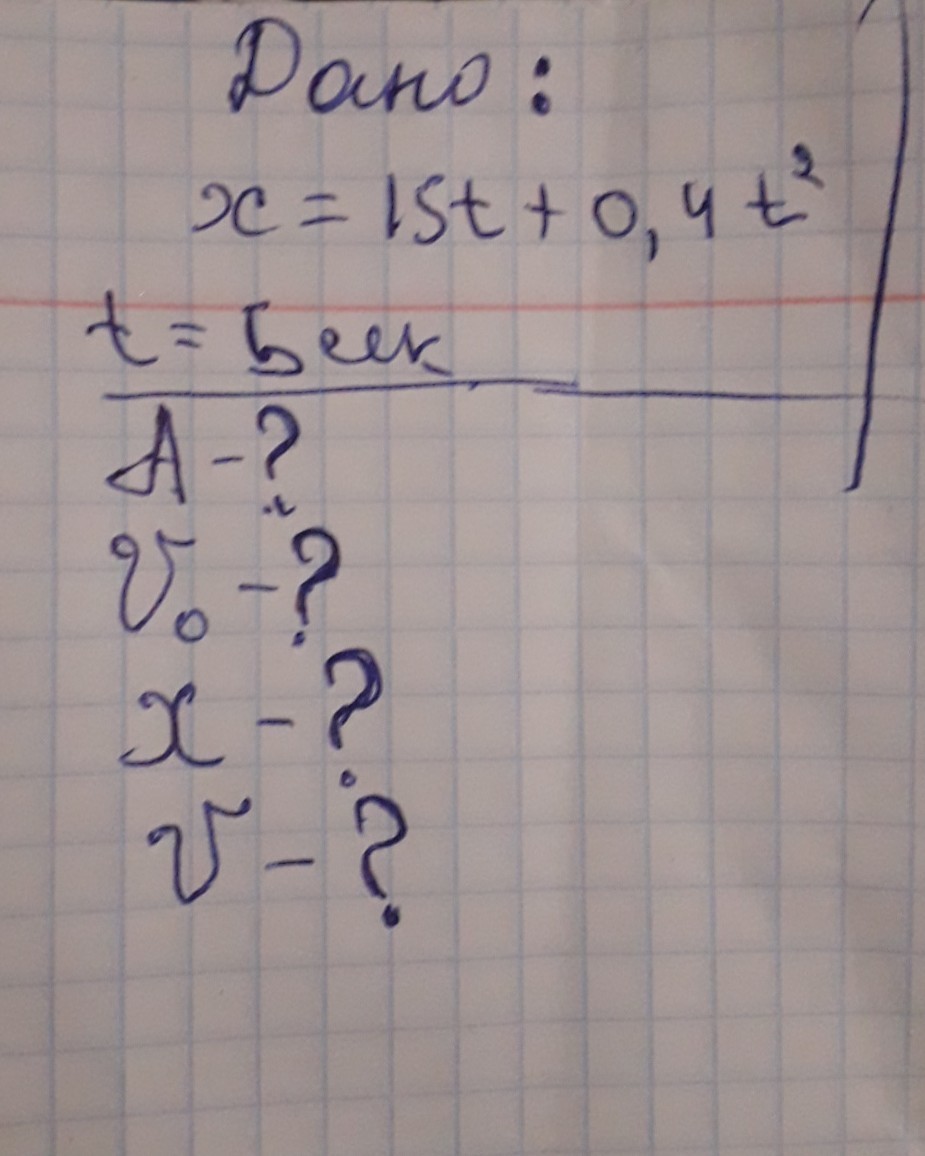 Дано:
x = 15t + 0,4 t²
t = 5 сек
A - ?
v₀ - ?
x - ?
v - ?